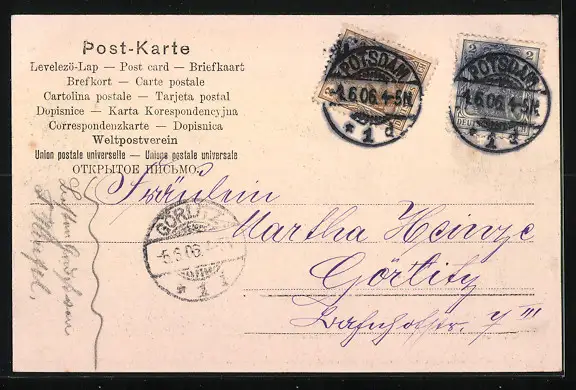 Post-Karte
Levelezö-Lap — Post card — Briefkaart
Brefkort — Carte postale
Cartolina postale — Tarjeta postal
Dopisnice — Karta Korespondencyjna
Correspondenzkarte — Dopisnica
Weltpostverein
Union postale universelle — Unione postale universale
ОТКРЫТОЕ ПИСЬМО
POTSDAM
4.6.06.4-5N.
* 1 d
POTSDAM
4.6.06.4-5N.
* 1 d
2
2
Fräulein
Martha Heinze
Görlitz
Bahnhofstr. 7 III
GÖRLITZ
-5.6.06.
* 1